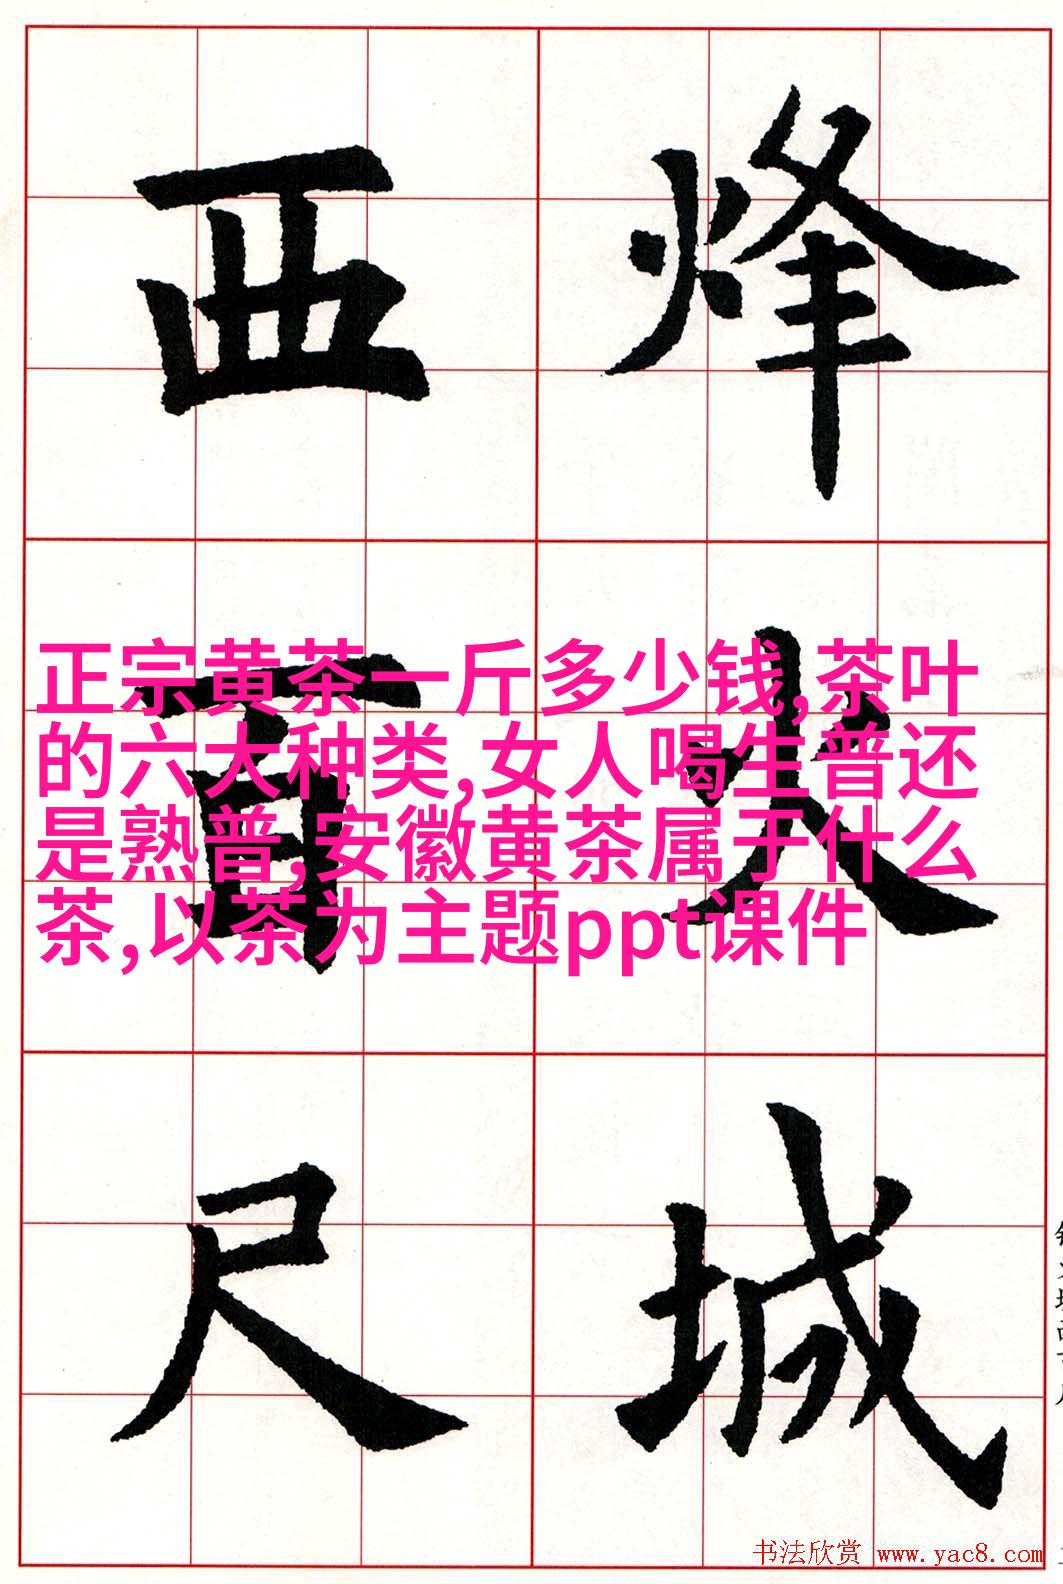 烽火城
西百尺
正宗黄茶一斤多少钱,茶叶
的六大种类,女人喝生普还
是熟普,安徽黄茶属于什么
茶,以茶为主题ppt课件
书法欣赏 www.yac8.com